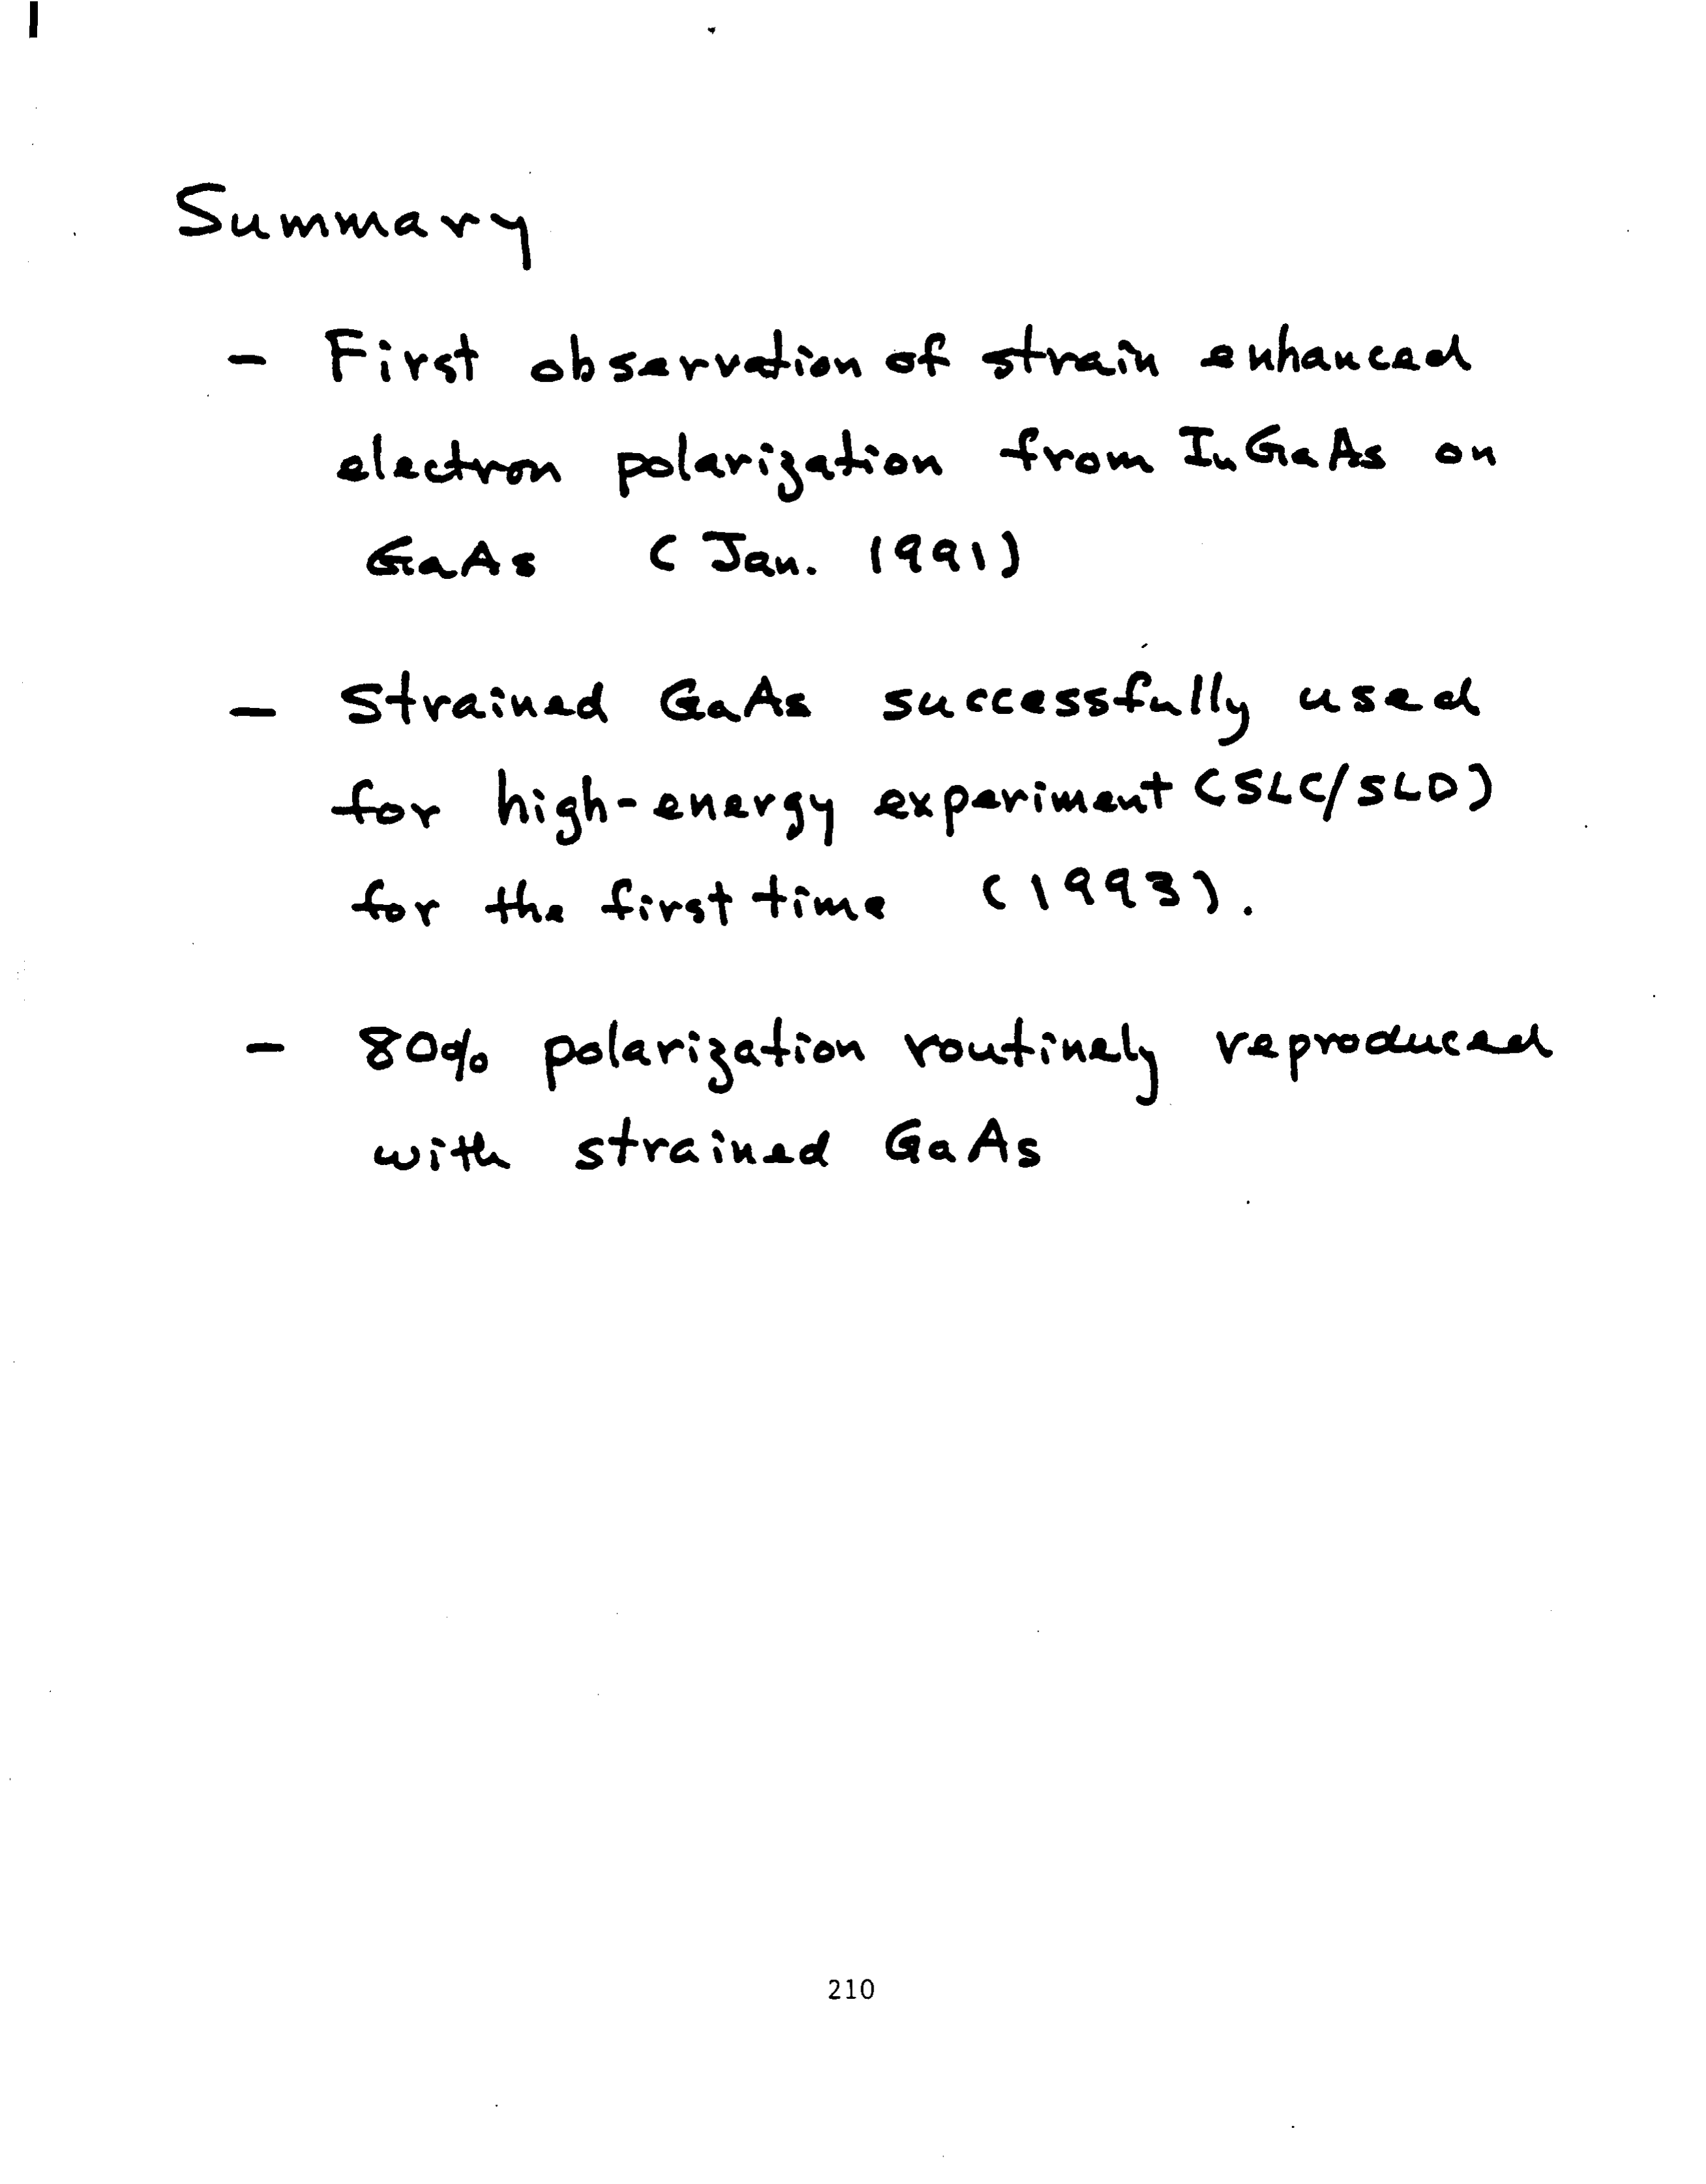 Summary
- First observation of strain enhanced
electron polarization from InGaAs on
GaAs (Jan. 1991)
- Strained GaAs successfully used
for high-energy experiment (SLC/SLD)
for the first time (1993).
- 80% polarization routinely reproduced
with strained GaAs
210